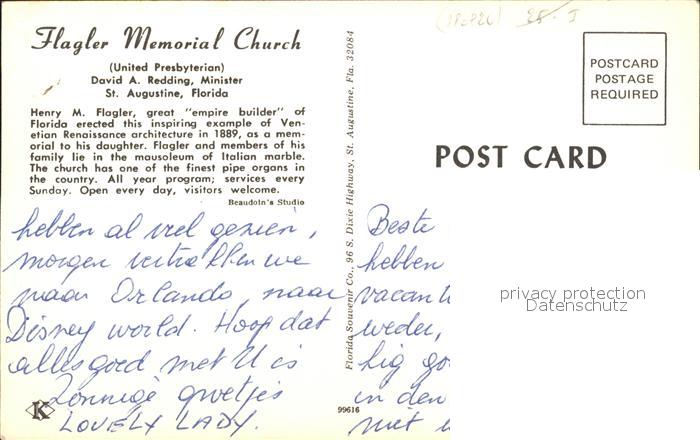 Flagler Memorial Church
(United Presbyterian)
David A. Redding, Minister
St. Augustine, Florida
Henry M. Flagler, great "empire builder" of
Florida erected this inspiring example of Ven-
etian Renaissance architecture in 1889, as a mem-
orial to his daughter. Flagler and members of his
family lie in the mausoleum of Italian marble.
The church has one of the finest pipe organs in
the country. All year program; services every
Sunday. Open every day, visitors welcome.
Beaudoin's Studio
hebben al veel gezien,
morgen vertrekken we
naar Orlando, naar
Disney world. Hoop dat
alles goed met U is
Zonnige groetjes
LOVELY LADY.
K
Florida Souvenir Co., 96 S. Dixie Highway, St. Augustine, Fla. 32084
99616
POSTCARD
POSTAGE
REQUIRED
POST CARD
Beste
hebben
vacant
weder,
in den
met
privacy protection
Datenschutz